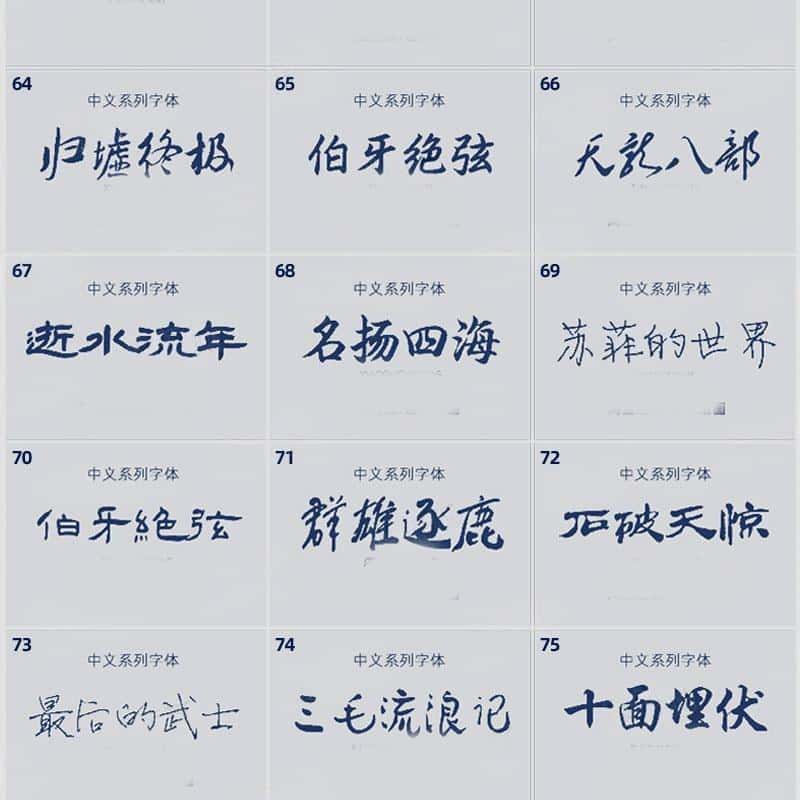 64
中文系列字体
归墟终极
65
中文系列字体
伯牙绝弦
66
中文系列字体
天龙八部
67
中文系列字体
逝水流年
68
中文系列字体
名扬四海
69
中文系列字体
苏菲的世界
70
中文系列字体
伯牙絕弦
71
中文系列字体
群雄逐鹿
72
中文系列字体
石破天惊
73
中文系列字体
最后的武士
74
中文系列字体
三毛流浪记
75
中文系列字体
十面埋伏